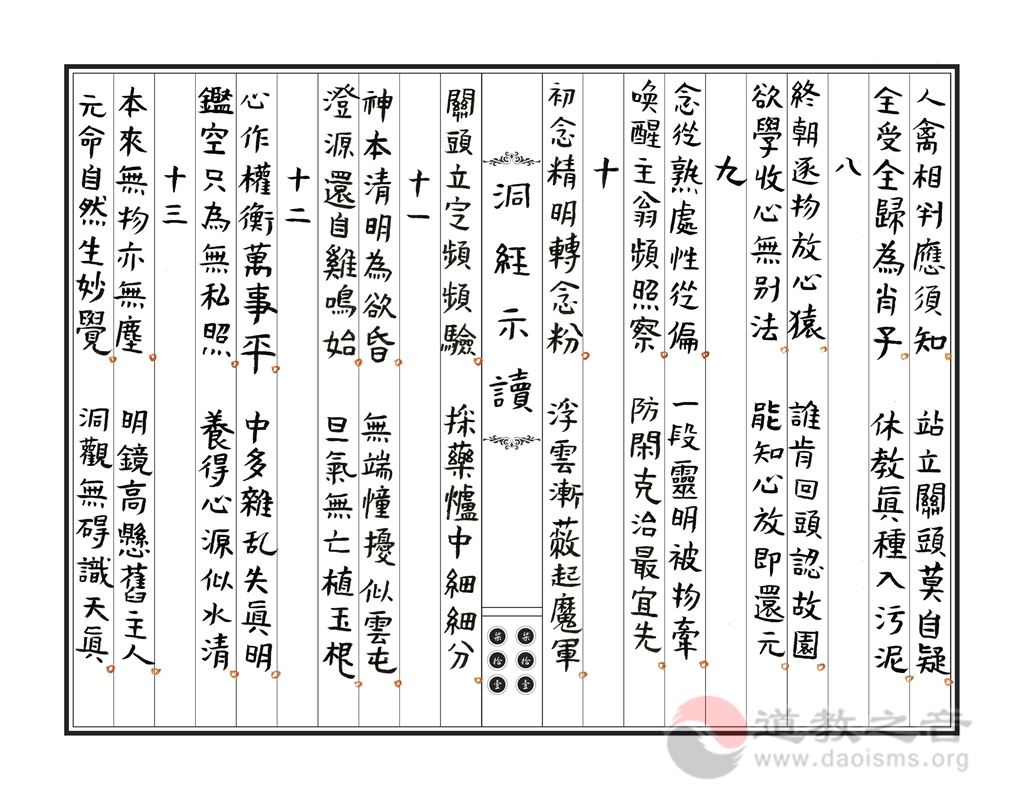 人禽相判應須知 站立關頭莫自疑
全受全歸為肖子 休教眞種入污泥
八
終朝逐物放心猿 誰肯回頭認故園
欲學收心無别法 能知心放即還元
九
念從熟處性從偏 一段靈明被物牽
喚醒主翁頻照察 防閑克治最宜先
十
初念精明轉念粉 浮雲漸蔽起魔軍
洞經示讀
柒拾壹
柒拾壹
關頭立定頻頻驗 採藥爐中細細分
十一
神本清明為欲昏 無端憧擾似雲屯
澄源還自雞鳴始 旦氣無亡植玉根
十二
心作權衡萬事平 中多雜乱失眞明
鑑空只為無私照 養得心源似水清
十三
本來無物亦無塵 明鏡高懸舊主人
元命自然生妙覺 洞觀無碍識天眞
道教之音
www.daoisms.org